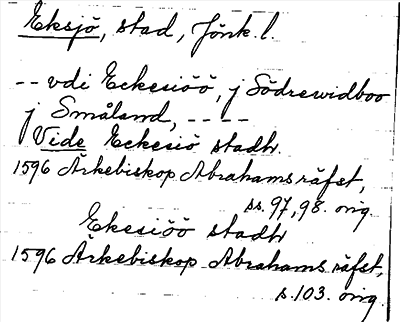 Eksjö, stad, Jönk. l.
-- vdi Eckesiöö, j Södrewidboo
j Småland, ----
Vide Eckesiö stadh.
1596 Ärkebiskop Abrahams räfst,
ss. 97, 98. orig.
Ekesiöö stadh
1596 Ärkebiskop Abrahams räfst,
s. 103. orig.